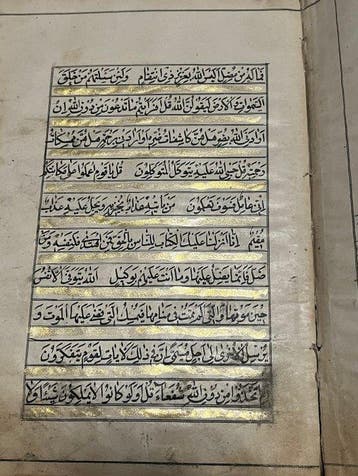 فما له من مضل اليس الله بعزيز ذي انتقام ولئن سألتهم من خلق
السموات والارض ليقولن الله قل افرايتم ما تدعون من دون الله ان
ارادني الله بضر هل هن كاشفات ضره او ارادني برحمة هل هن ممسكات
رحمته قل حسبي الله عليه يتوكل المتوكلون قل يا قوم اعملوا على مكانتكم
اني عامل فسوف تعلمون من ياتيه عذاب يخزيه ويحل عليه عذاب
مقيم انا انزلنا عليك الكتاب للناس بالحق فمن اهتدى فلنفسه ومن
ضل فانما يضل عليها وما انت عليهم بوكيل الله يتوفى الانفس
حين موتها والتي لم تمت في منامها فيمسك التي قضى عليها الموت و
يرسل الاخرى الى اجل مسمى ان في ذلك لايات لقوم يتفكرون
ام اتخذوا من دون الله شفعاء قل اولو كانوا لا يملكون شيئا ولا